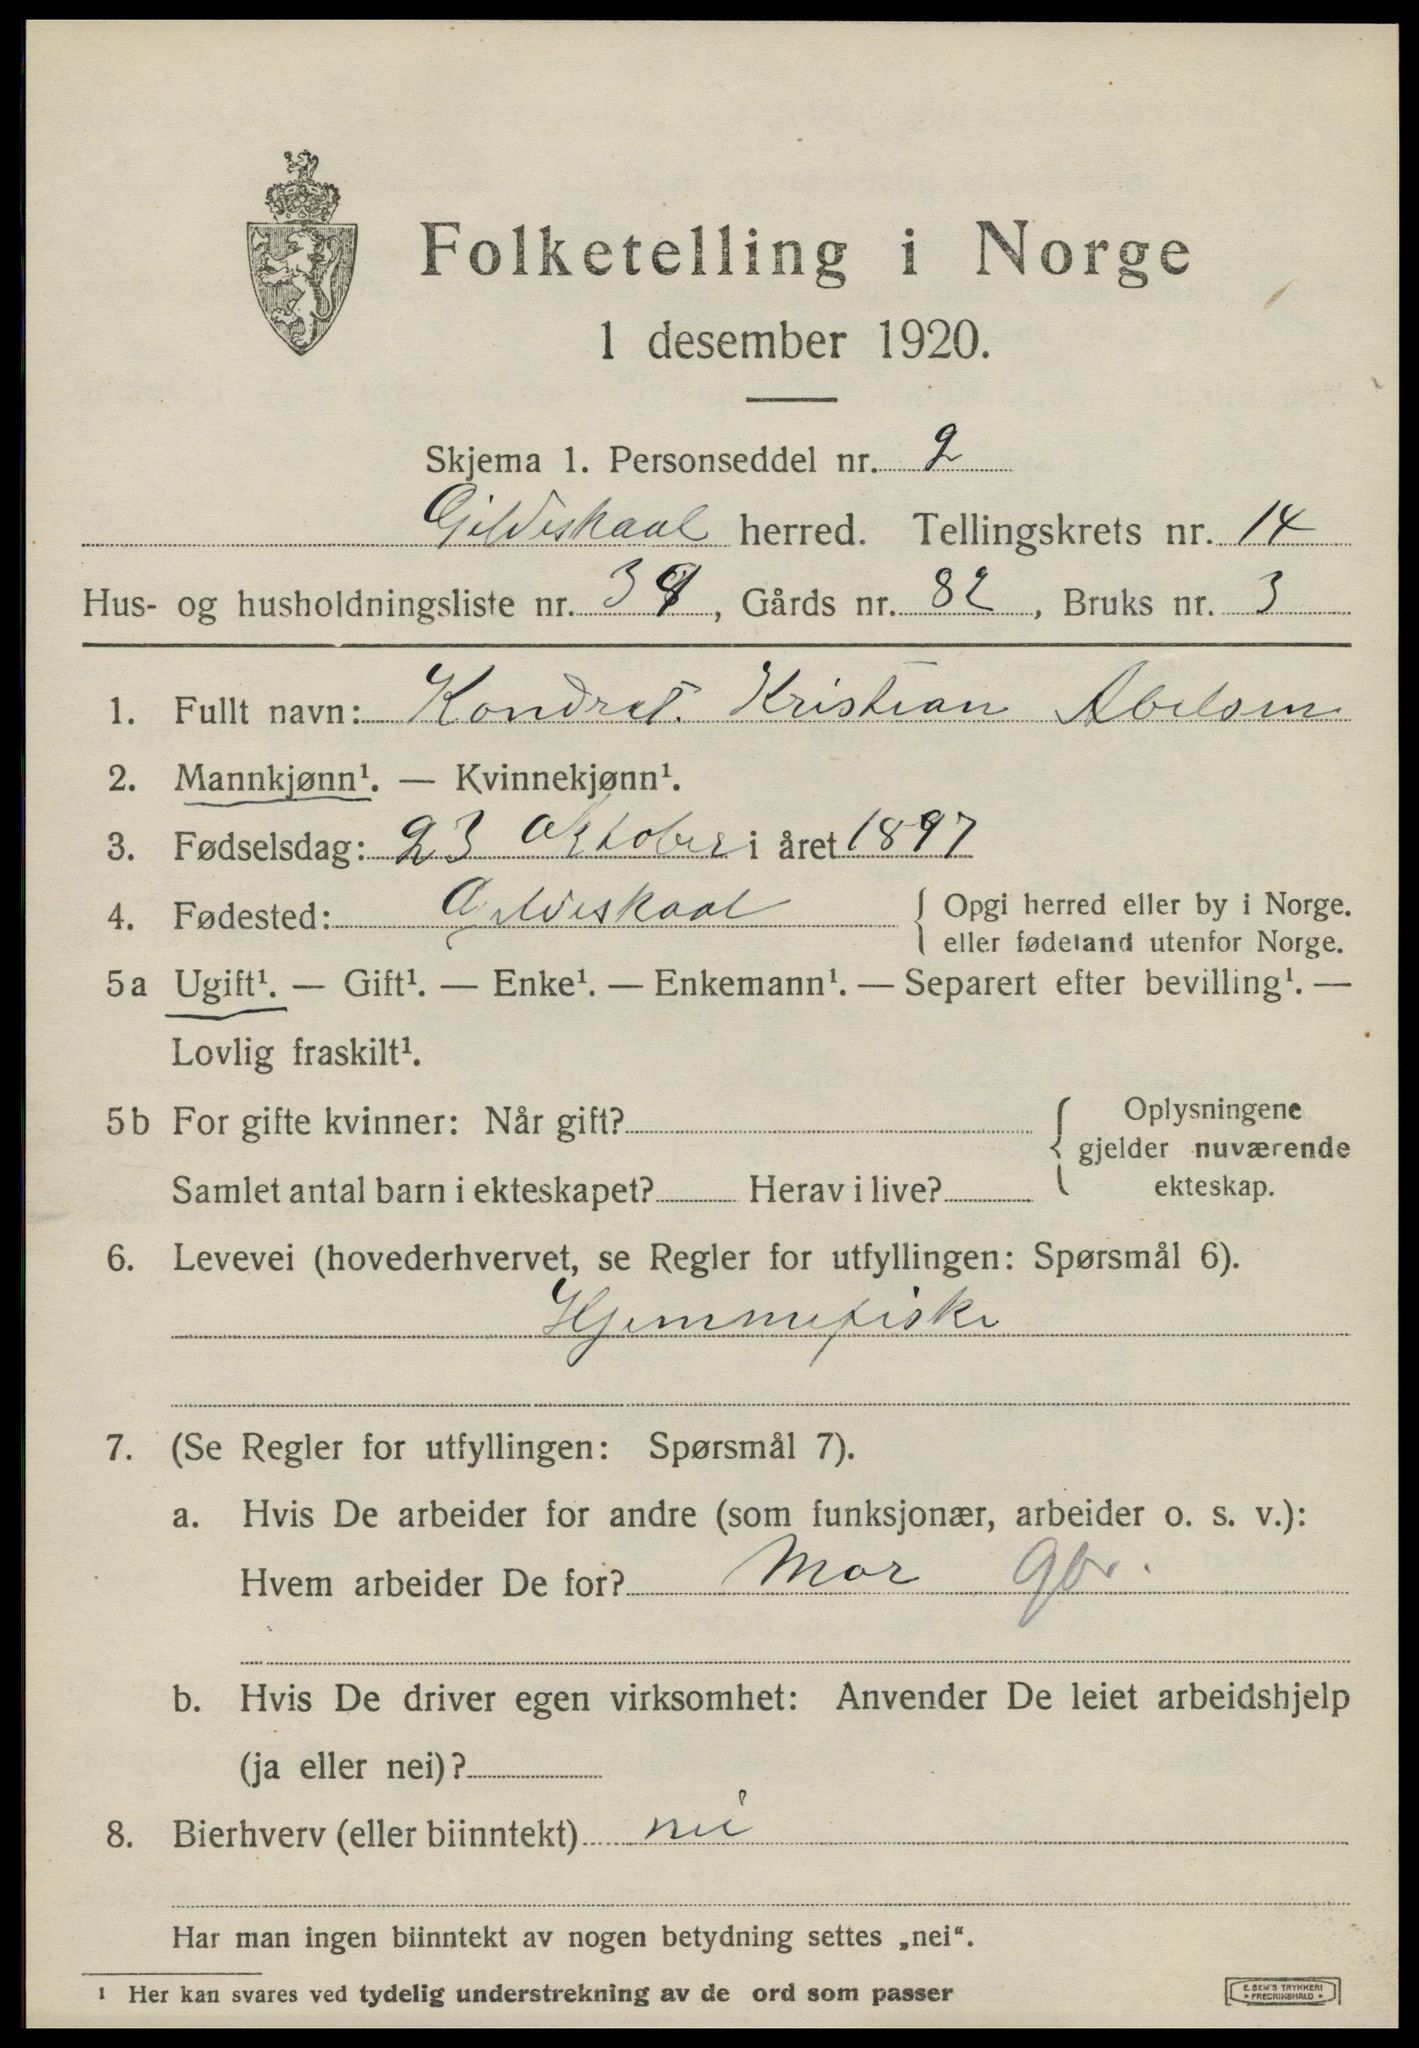 Folketelling i Norge
1 desember 1920.
Skjema 1. Personseddel nr. 2
Gildeskaal herred. Tellingskrets nr. 14
Hus- og husholdningsliste nr. 39, Gårds nr. 82, Bruks nr. 3
1. Fullt navn: Kondrat. Kristian Abelsen
2. Mannkjønn¹. — Kvinnekjønn¹.
3. Fødselsdag: 23 Oktober i året 1897
4. Fødested: Gildeskaal { Opgi herred eller by i Norge.
eller fødeland utenfor Norge.
5a Ugift¹. — Gift¹. — Enke¹. — Enkemann¹. — Separert efter bevilling¹. —
Lovlig fraskilt¹.
5b For gifte kvinner: Når gift? { Oplysningene
gjelder nuværende
Samlet antal barn i ekteskapet? Herav i live? ekteskap.
6. Levevei (hovederhvervet, se Regler for utfyllingen: Spørsmål 6).
Hjemmefiske
7. (Se Regler for utfyllingen: Spørsmål 7).
a. Hvis De arbeider for andre (som funksjonær, arbeider o. s. v.):
Hvem arbeider De for? Mor gbr.
b. Hvis De driver egen virksomhet: Anvender De leiet arbeidshjelp
(ja eller nei)?
8. Bierhverv (eller biinntekt) nei
Har man ingen biinntekt av nogen betydning settes „nei“.
¹ Her kan svares ved tydelig understrekning av de ord som passer
E. SEM'S TRYKKERI
FREDRIKSHALD